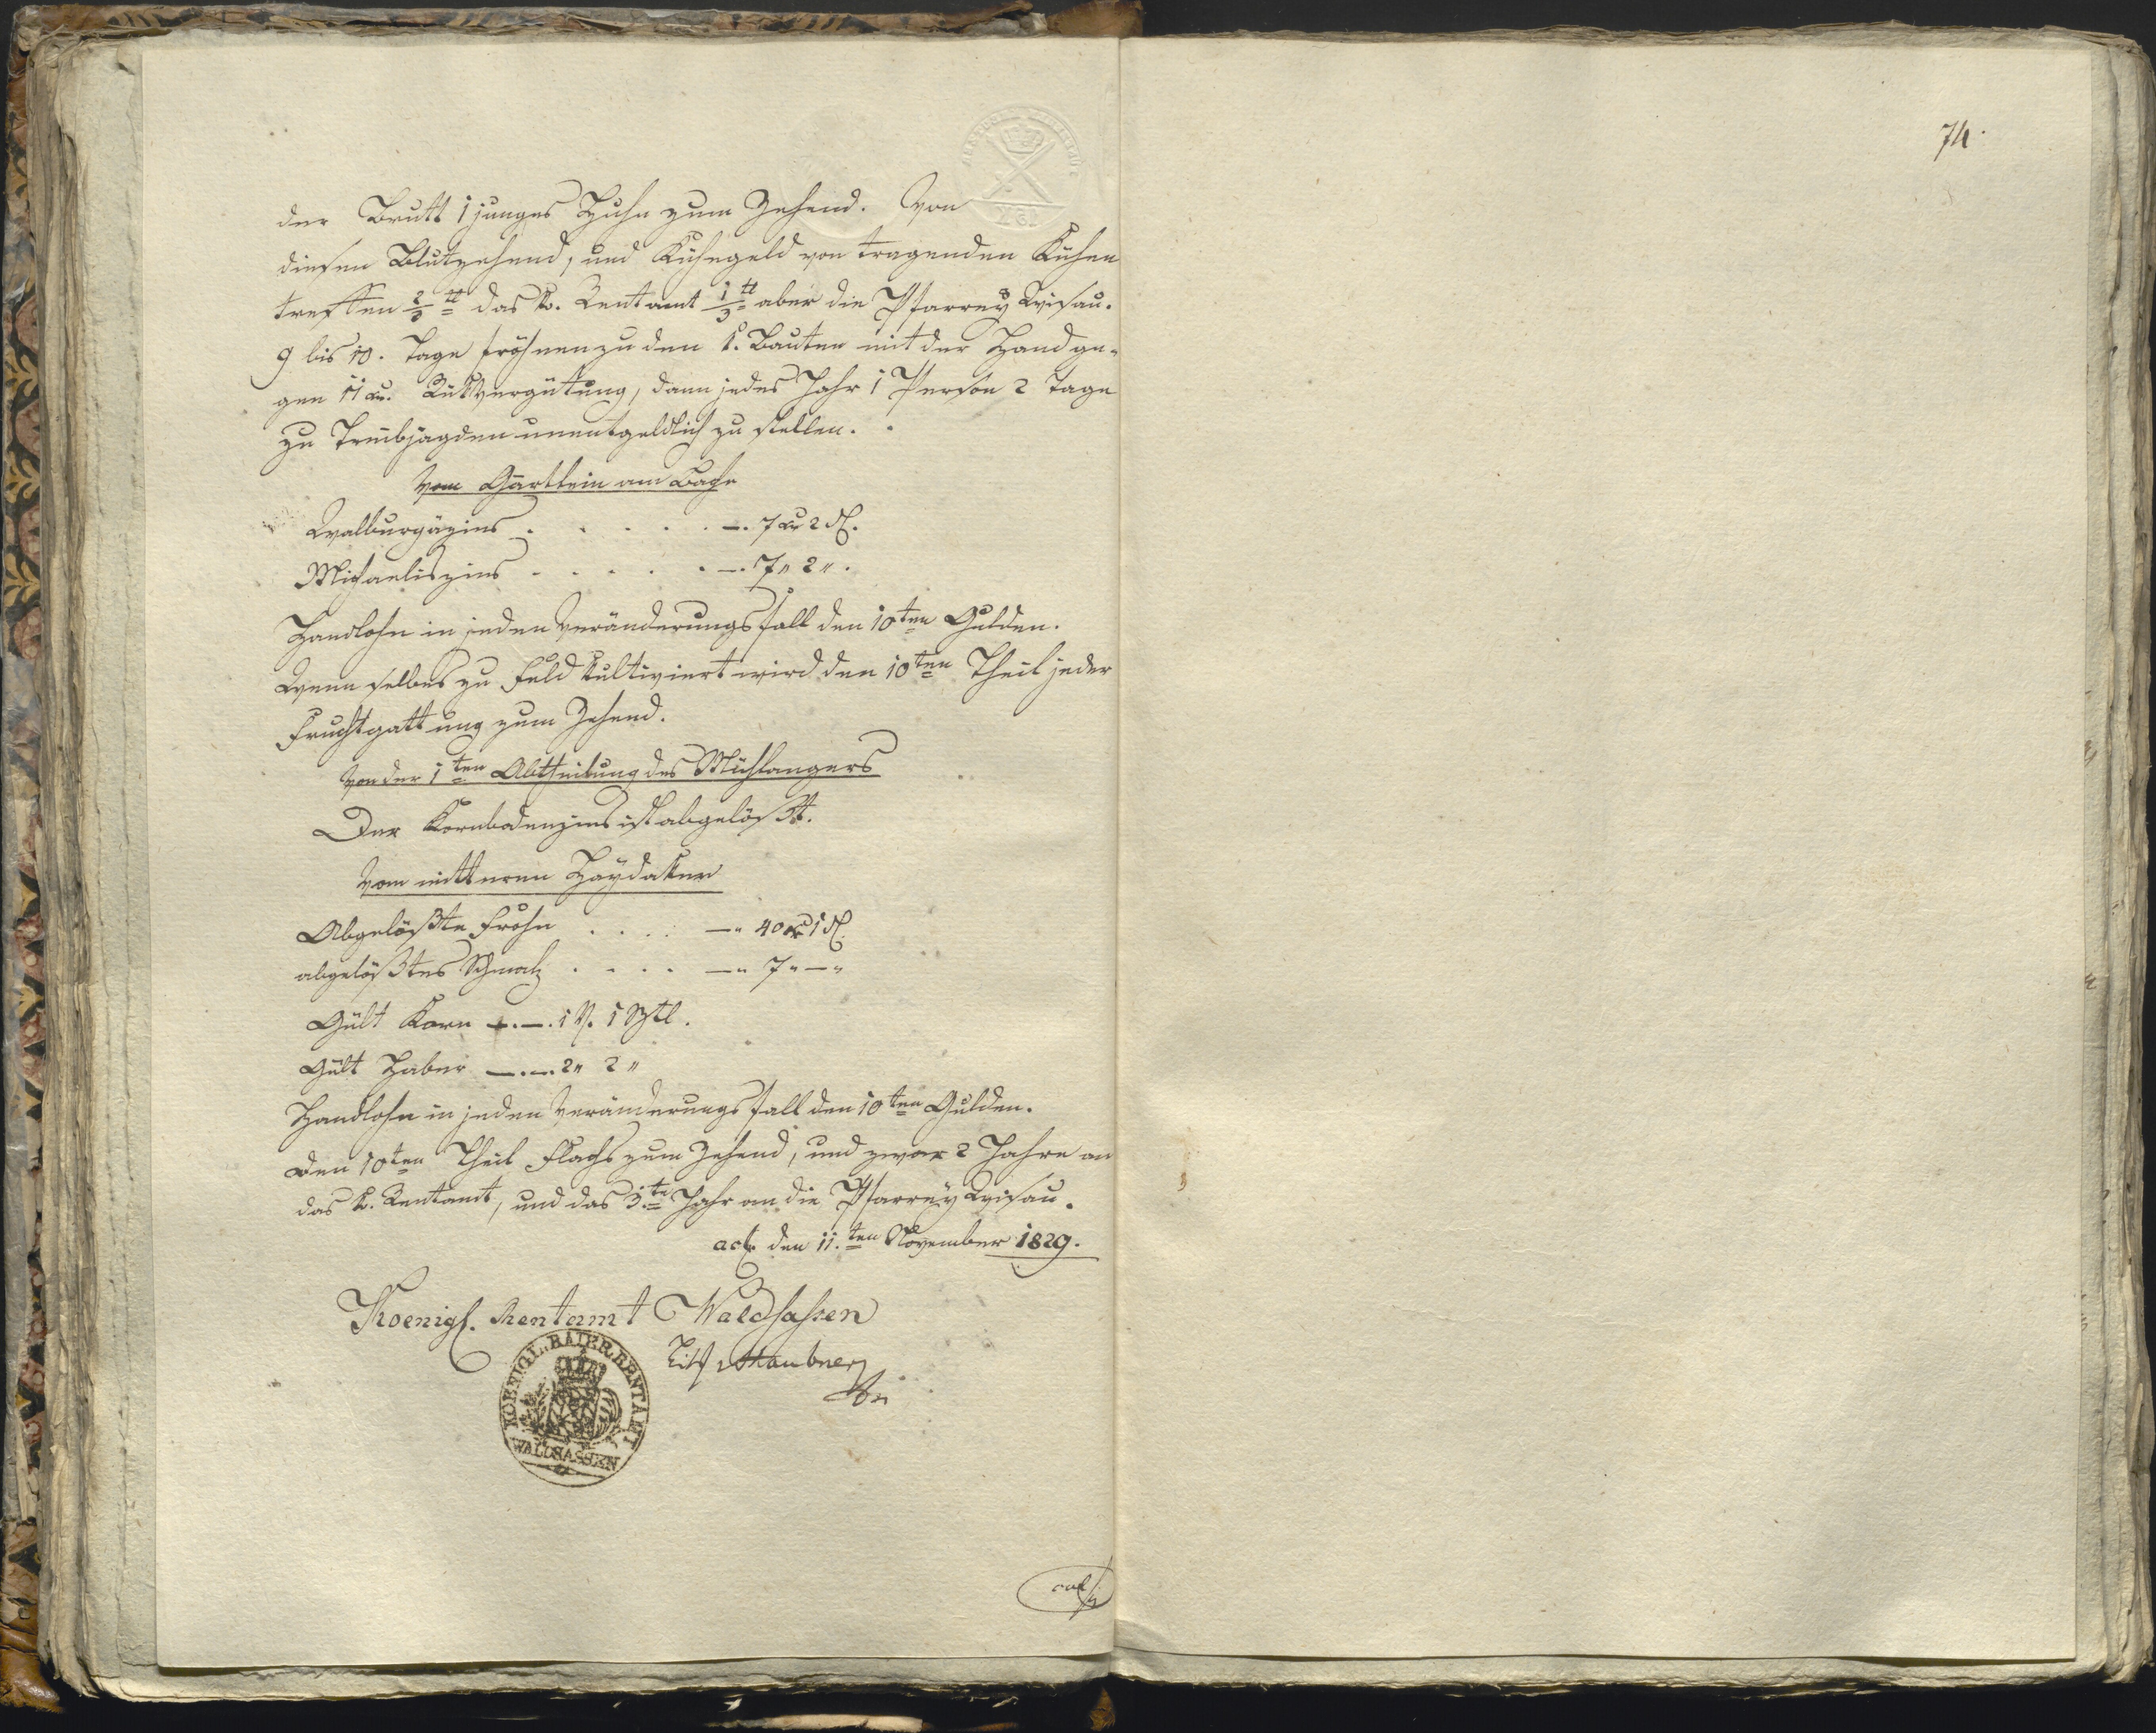 74.
der Brutt 1 junges Huhn zum Zehend. Von
diesen Blutzehend, und Kühegeld von tragenden Kühen
treffen 2/3 tl das k. Rentamt 1/3 tl aber die Pfarrey Wisau.
9 bis 10. Tage fröhnen zu den k. Bauten mit der Hand ge-
gen 11 kr. Rükvergütung, dann jedes Jahr 1 Person 2 Tage
zu Treibjagden unentgeldlich zu stellen.
Vom Gärtlein am Bache
Walburgäzins . . . . . —. 7 kr 2 dl.
Michaeliszins . . . . . —. 7 „ 2 „.
Handlohn in jeden Veränderungsfall den 10ten Gulden.
Wenn selbes zu Feld kultiviert wird den 10ten Theil jeder
Fruchtgattung zum Zehend.
Von der 1ten Abtheilung des Mühlangers
Der Kornbodenzins ist abgelößt.
Vom mitteren Haydaker
Abgelößte Frohn . . . . —„ 40 kr 1 dl.
abgelößtes Schmalz . . . . —„ 7 „ — „
Gült Korn —.—. 1 V. 1 Sztl.
Gült Haber —.—. 2 „ 2 „
Handlohn in jeden Veränderungsfall den 10ten Gulden.
Den 10ten Theil Flachs zum Zehend, und zwar 2 Jahre an
das k. Rentamt, und das 3te Jahr an die Pfarrey Wisau.
act. den 11.ten November 1829.
Koenigl. Rentamt Waldsassen
KOENIGL. BAIER. RENTAMT
WALDSASSEN